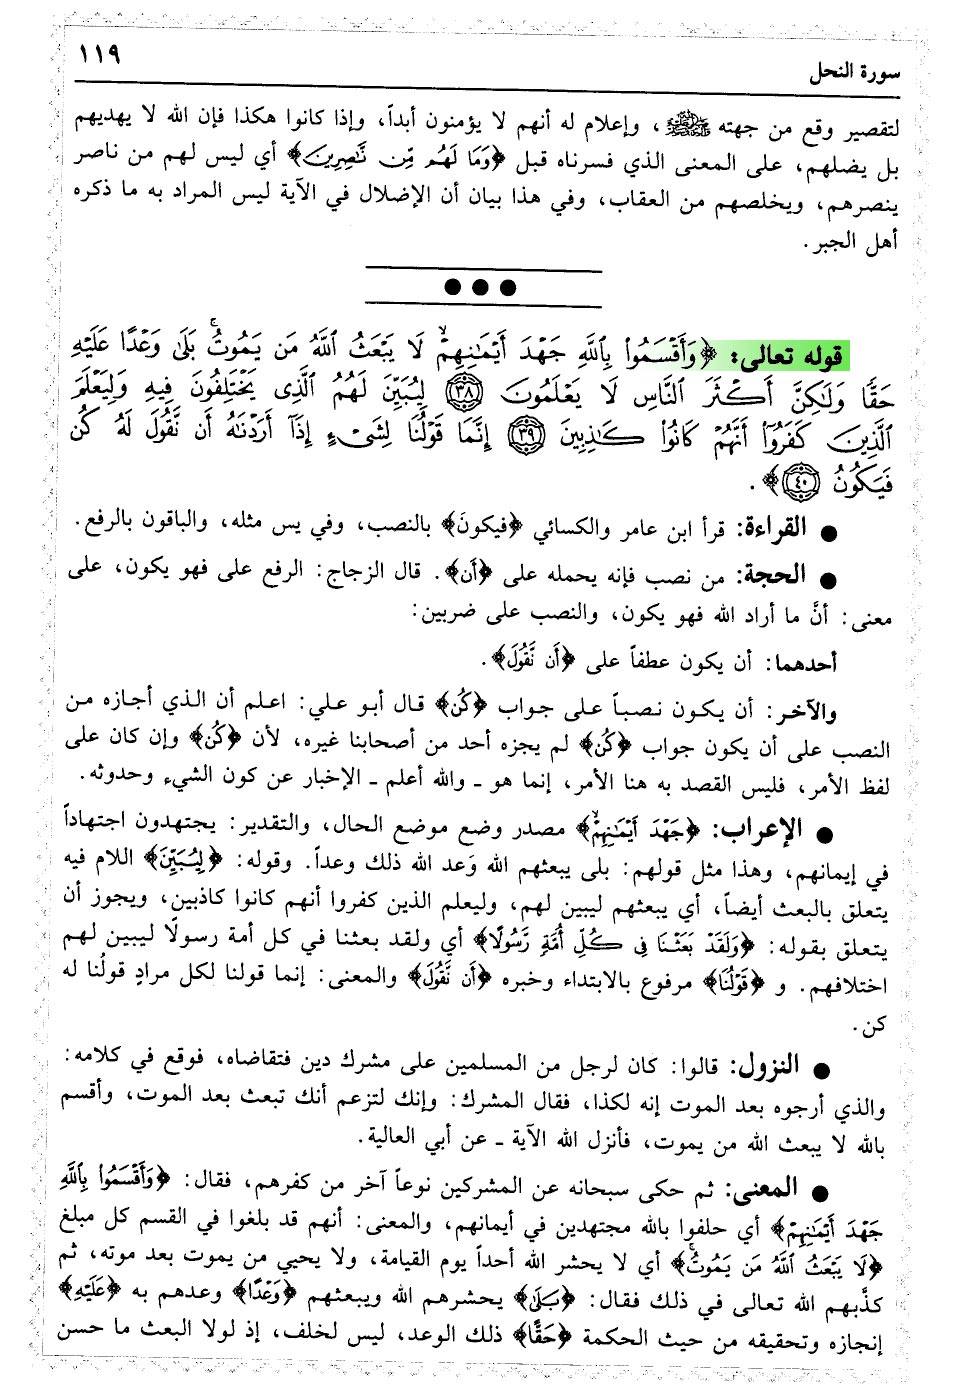 سورة النحل
١١٩
لتقصير وقع من جهته ﷺ، وإعلام له أنهم لا يؤمنون أبداً، وإذا كانوا هكذا فإن الله لا يهديهم
بل يضلهم، على المعنى الذي فسرناه قبل ﴿وَمَا لَهُم مِّن نَّاصِرِينَ﴾ أي ليس لهم من ناصر
ينصرهم، ويخلصهم من العقاب، وفي هذا بيان أن الإضلال في الآية ليس المراد به ما ذكره
أهل الجبر.
قوله تعالى: ﴿وَأَقْسَمُوا۟ بِٱللَّهِ جَهْدَ أَيْمَـٰنِهِمْ ۙ لَا يَبْعَثُ ٱللَّهُ مَن يَمُوتُ ۚ بَلَىٰ وَعْدًا عَلَيْهِ
حَقًّا وَلَـٰكِنَّ أَكْثَرَ ٱلنَّاسِ لَا يَعْلَمُونَ ٣٨ لِيُبَيِّنَ لَهُمُ ٱلَّذِى يَخْتَلِفُونَ فِيهِ وَلِيَعْلَمَ
ٱلَّذِينَ كَفَرُوٓا۟ أَنَّهُمْ كَانُوا۟ كَـٰذِبِينَ ٣٩ إِنَّمَا قَوْلُنَا لِشَىْءٍ إِذَآ أَرَدْنَـٰهُ أَن نَّقُولَ لَهُۥ كُن
فَيَكُونُ ٤٠﴾.
● القراءة: قرأ ابن عامر والكسائي ﴿فيكونَ﴾ بالنصب، وفي يس مثله، والباقون بالرفع.
● الحجة: من نصب فإنه يحمله على ﴿أن﴾. قال الزجاج: الرفع على فهو يكون، على
معنى: أنَّ ما أراد الله فهو يكون، والنصب على ضربين:
أحدهما: أن يكون عطفاً على ﴿أَن نَّقُولَ﴾.
والآخر: أن يكون نصباً على جواب ﴿كُن﴾ قال أبو علي: اعلم أن الذي أجازه من
النصب على أن يكون جواب ﴿كُن﴾ لم يجزه أحد من أصحابنا غيره، لأن ﴿كُن﴾ وإن كان على
لفظ الأمر، فليس القصد به هنا الأمر، إنما هو ـ والله أعلم ـ الإخبار عن كون الشيء وحدوثه.
● الإعراب: ﴿جَهْدَ أَيْمَـٰنِهِمْ ۙ﴾ مصدر وضع موضع الحال، والتقدير: يجتهدون اجتهاداً
في إيمانهم، وهذا مثل قولهم: بلى يبعثهم الله وَعد الله ذلك وعداً. وقوله: ﴿لِيُبَيِّنَ﴾ اللام فيه
يتعلق بالبعث أيضاً، أي يبعثهم ليبين لهم، وليعلم الذين كفروا أنهم كانوا كاذبين، ويجوز أن
يتعلق بقوله: ﴿وَلَقَدْ بَعَثْنَا فِى كُلِّ أُمَّةٍ رَّسُولًا﴾ أي ولقد بعثنا في كل أمة رسولًا ليبين لهم
اختلافهم. و ﴿قَوْلُنَا﴾ مرفوع بالابتداء وخبره ﴿أَن نَّقُولَ﴾ والمعنى: إنما قولنا لكل مرادٍ قولُنا له
كن.
● النزول: قالوا: كان لرجل من المسلمين على مشرك دين فتقاضاه، فوقع في كلامه:
والذي أرجوه بعد الموت إنه لكذا، فقال المشرك: وإنك لتزعم أنك تبعث بعد الموت، وأقسم
بالله لا يبعث الله من يموت، فأنزل الله الآية ـ عن أبي العالية.
● المعنى: ثم حكى سبحانه عن المشركين نوعاً آخر من كفرهم، فقال: ﴿وَأَقْسَمُوا۟ بِٱللَّهِ
جَهْدَ أَيْمَـٰنِهِمْ﴾ أي حلفوا بالله مجتهدين في أيمانهم، والمعنى: أنهم قد بلغوا في القسم كل مبلغ
﴿لَا يَبْعَثُ ٱللَّهُ مَن يَمُوتُ ۚ﴾ أي لا يحشر الله أحداً يوم القيامة، ولا يحيي من يموت بعد موته، ثم
كذَّبهم الله تعالى في ذلك فقال: ﴿بَلَىٰ﴾ يحشرهم الله ويبعثهم ﴿وَعْدًا﴾ وعدهم به ﴿عَلَيْهِ﴾
إنجازه وتحقيقه من حيث الحكمة ﴿حَقًّا﴾ ذلك الوعد، ليس لخلف، إذ لولا البعث ما حسن